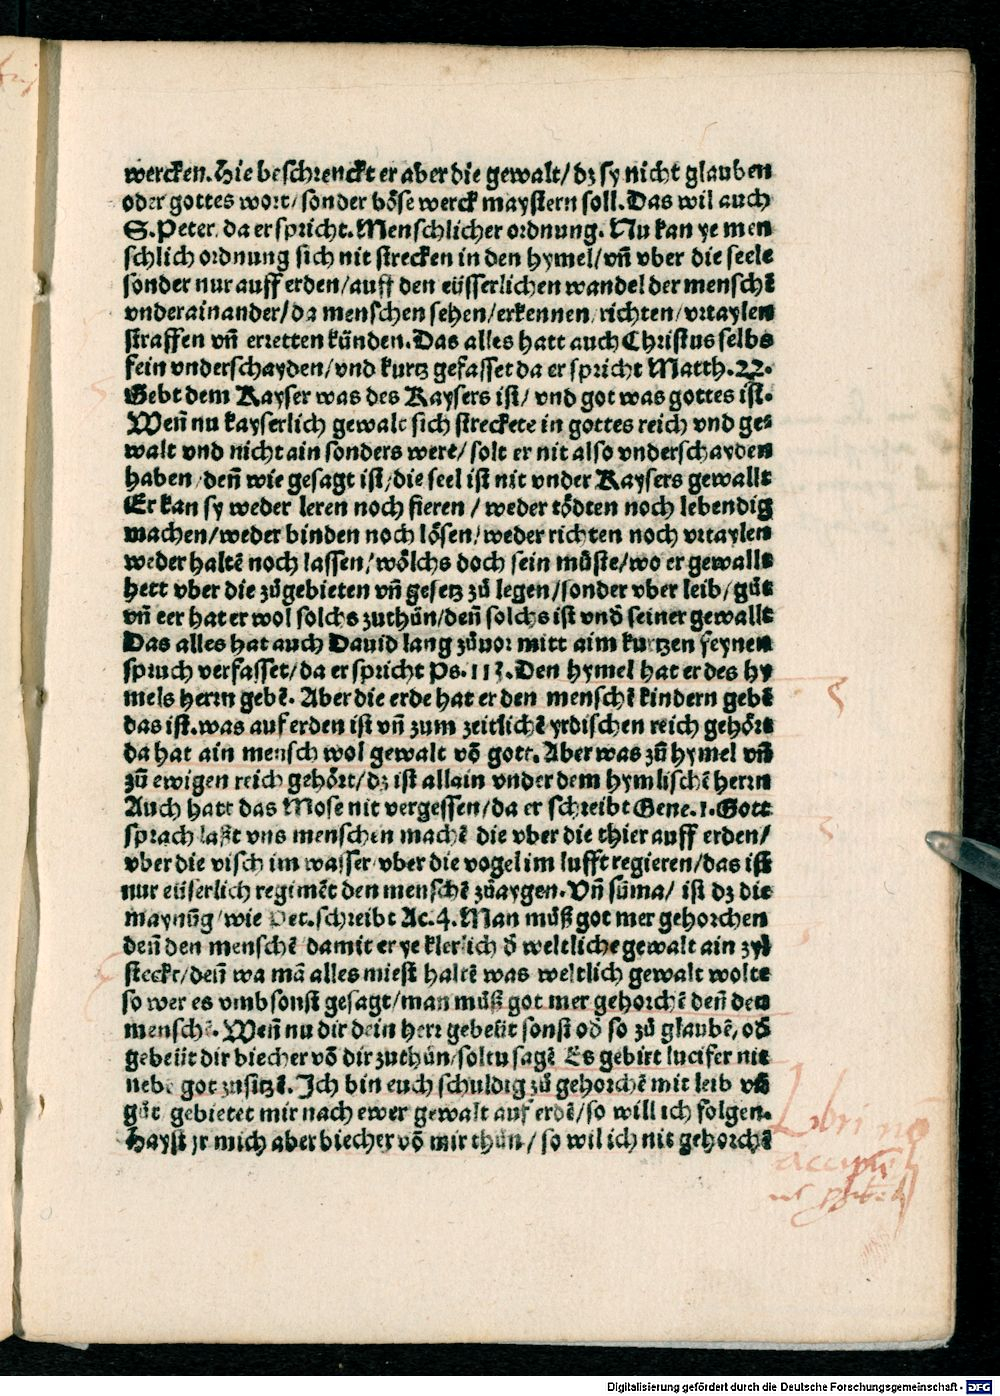 wercken. Hie beschrenckt er aber die gewalt/ dz sy nicht glauben
oder gottes wort/ sonder böse werck maystern soll. Das wil auch
S. Peter, da er spricht. Menschlicher ordnung. Nu kan ye men
schlich ordnung sich nit strecken in den hymel/ vñ vber die seele
sonder nur auff erden/ auff den eüsserlichen wandel der menschē
vnderainander/ da menschen sehen/ erkennen/ richten/ vrtaylen
straffen vñ erretten künden. Das alles hatt auch Christus selbs
fein vnderschayden/ vnd kurtz gefasset da er spricht Matth. 22.
Gebt dem Kayser was des Kaysers ist/ vnd got was gottes ist.
Weñ nu kayserlich gewalt sich streckete in gottes reich vnd ge⸗
walt vnd nicht ain sonders were/ solt er nit also vnderschayden
haben/ deñ wie gesagt ist/ die seel ist nit vnder Kaysers gewallt
Er kan sy weder leren noch fieren / weder tödten noch lebendig
machen/ weder binden noch lösen/ weder richten noch vrtaylen
weder haltē noch lassen/ wölchs doch sein müste/ wo er gewallt
hett vber die zůgebieten vñ gesetz zů legen/ sonder vber leib/ gůt
vñ eer hat er wol solchs zuthůn/ deñ solchs ist vnd̄ seiner gewallt
Das alles hat auch Dauid lang zůuor mitt aim kurtzen feynen
spruch verfasset/ da er spricht Ps. 113. Den hymel hat er des hy
mels herrn gebē. Aber die erde hat er den menschē kindern gebē
das ist. was auf erden ist vñ zum zeitlichē yrdischen reich gehört
da hat ain mensch wol gewalt vō gott. Aber was zů hymel vñ
zů ewigen reich gehört/ dz ist allain vnder dem hymlischē herrn
Auch hatt das Mose nit vergessen/ da er schreibt Gene. 1. Gott
sprach laßt vns menschen machē die vber die thier auff erden/
vber die visch im wasser/ vber die vogel im lufft regieren/ das ist
nur eüserlich regimēt den menschē zůaygen. Vñ sūma/ ist dz die
maynūg/ wie Pet. schreibt Ac. 4. Man můß got mer gehorchen
deñ den menschē/ damit er ye klerlich d̄ weltliche gewalt ain zyl
steckt/ deñ wa mā alles miest haltē was weltlich gewalt wolte
so wer es vmbsonst gesagt/ man můß got mer gehorchē deñ den
menschē. Weñ nu dir dein herr gebeüt sonst od̄ so zů glaubē, od̄
gebeüt dir biecher vō dir zuthůn/ soltu sagē Es gebirt lucifer nit
nebē got zusitzē. Ich bin euch schuldig zů gehorchē mit leib vñ
gůt/ gebietet mir nach ewer gewalt auf erdē/ so will ich folgen.
Hayst jr mich aber biecher vō mir thůn/ so wil ich nit gehorchē
Libri nō
Digitalisierung gefördert durch die Deutsche Forschungsgemeinschaft - DFG